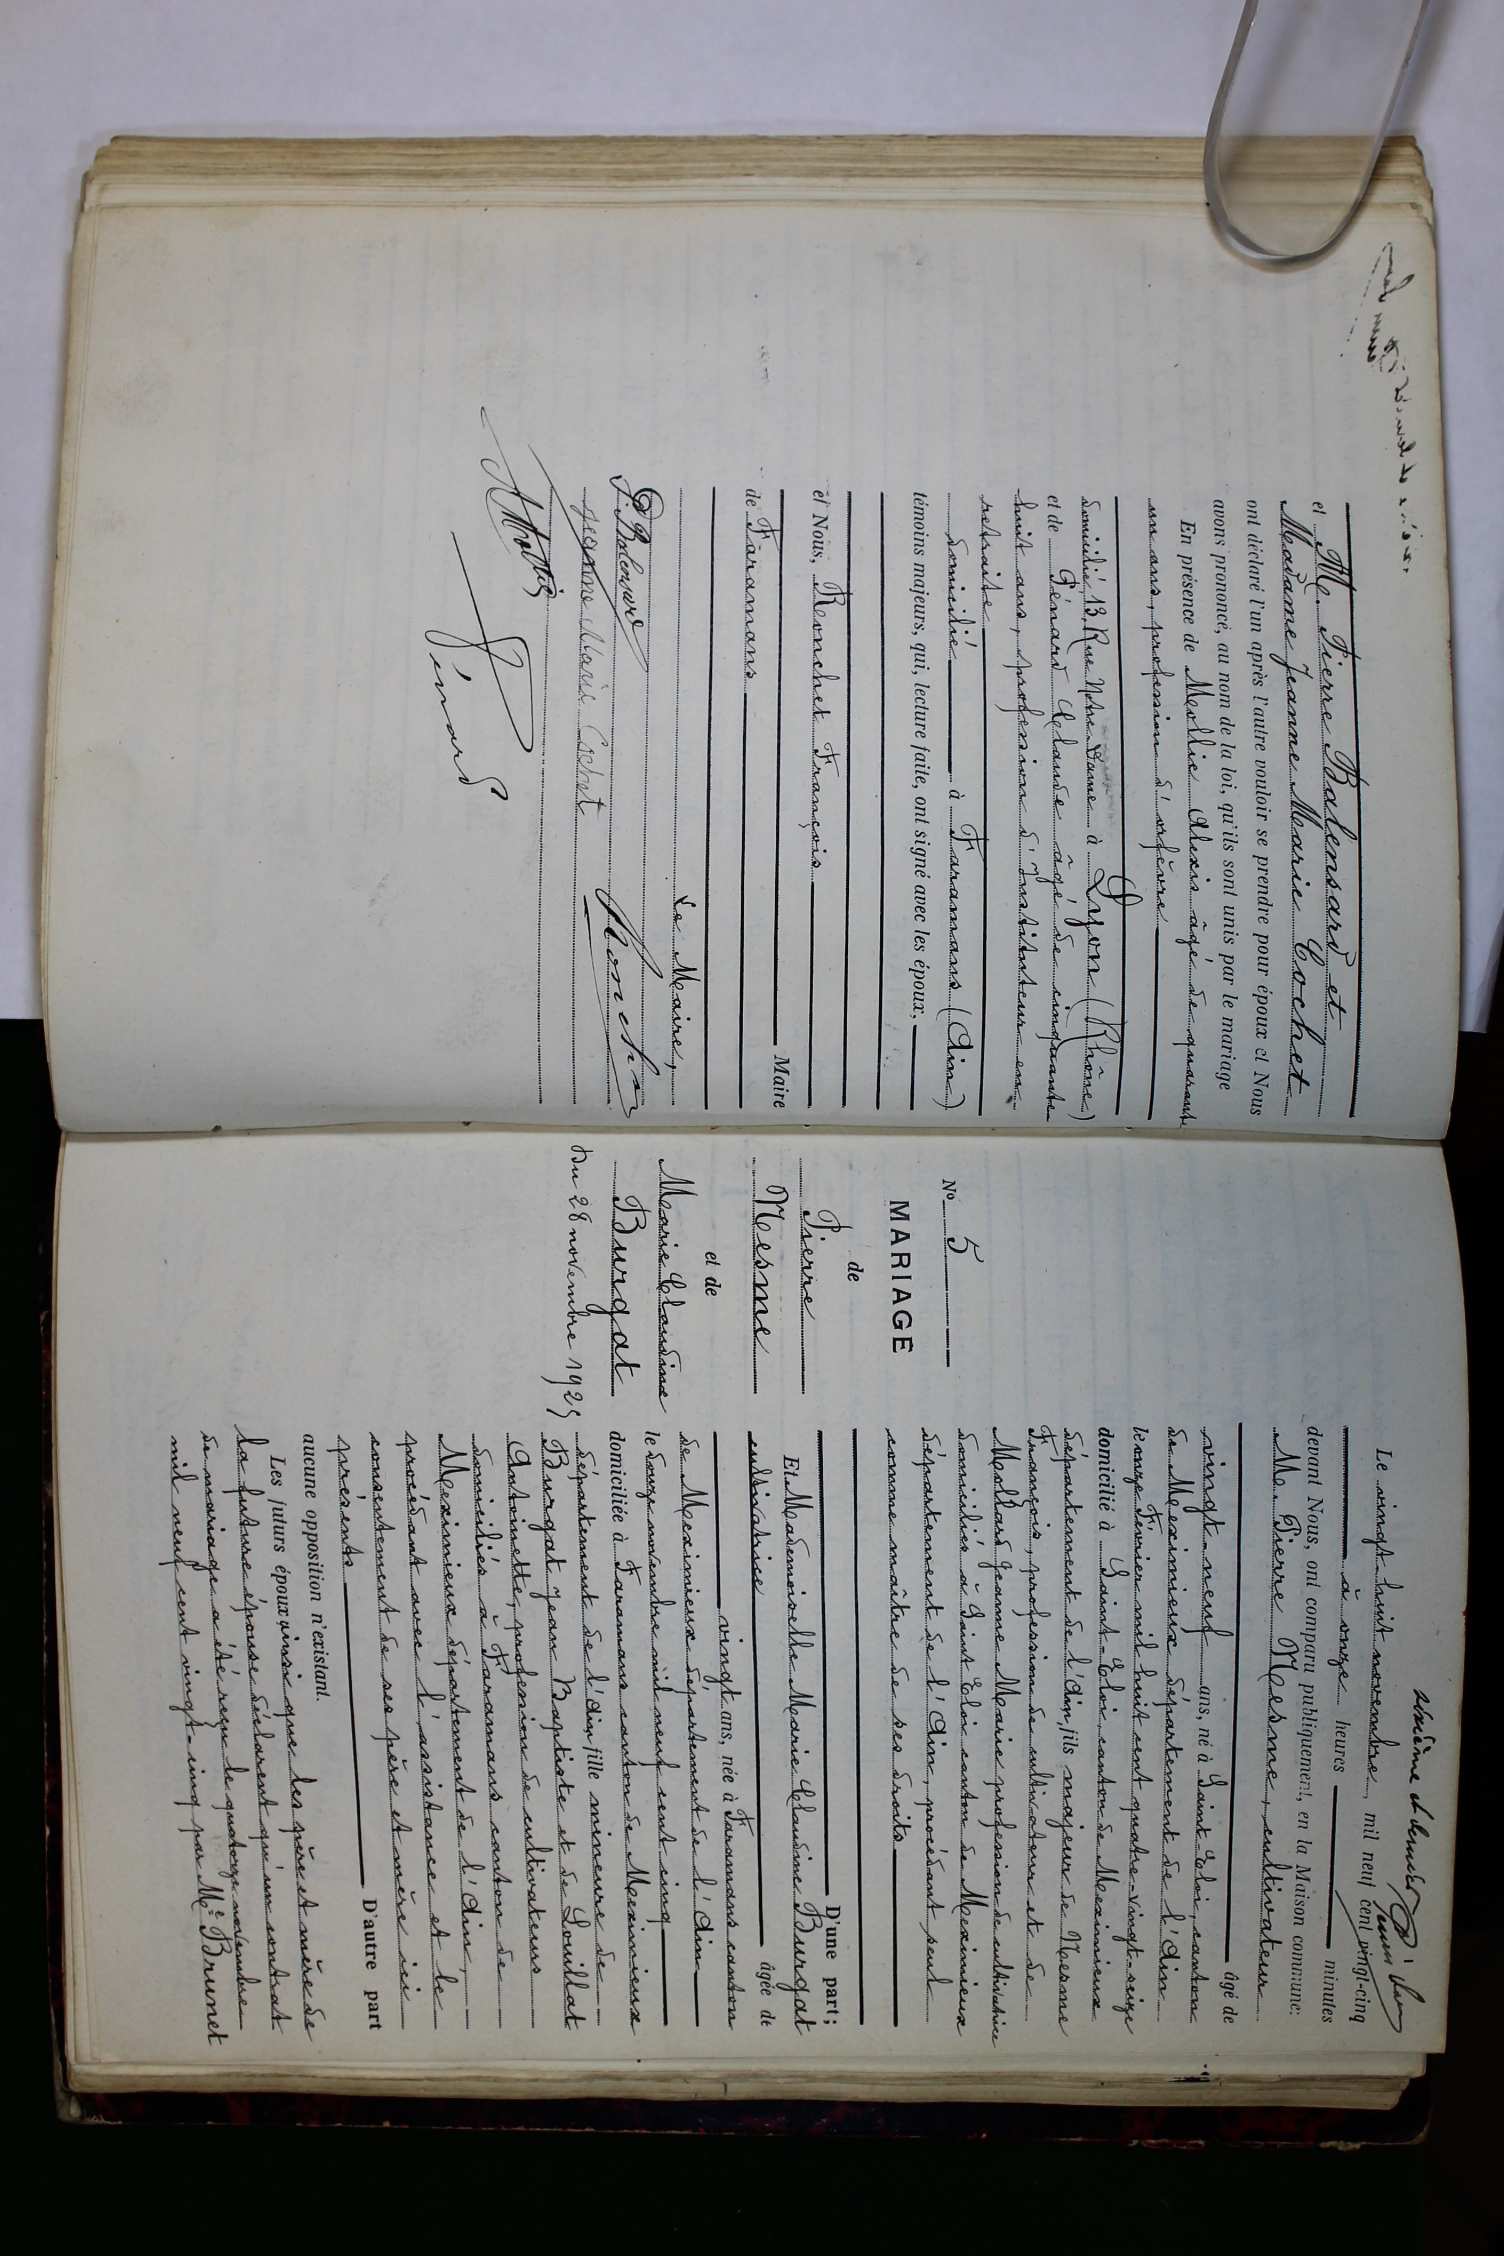 et M. Pierre Balensard et
Madame Jeanne Marie Cochet
ont déclaré l'un après l'autre vouloir se prendre pour époux et Nous
avons prononcé, au nom de la loi, qu'ils sont unis par le mariage
En présence de Mollie Alexis âgé de quarante
un ans, profession d'orfèvre
domicilié 13, Rue Notre-Dame à Lyon (Rhône)
et de Pénard Claude âgé de cinquante
huit ans, profession d'Instituteur en
retraite
domicilié à Faramans (Ain)
témoins majeurs, qui, lecture faite, ont signé avec les époux,
et Nous, Ronchet François
Maire
de Faramans
Le Maire,
P. Balensard
Ronchet
Jeanne Marie Cochet
A Mollie
Pénard
No 5
MARIAGE
de
Pierre
Mesme
et de
Marie Claudine
Burgat
Du 28 novembre 1925
Le vingt-huit novembre, mil neuf cent vingt-cinq
à onze heures minutes
devant Nous, ont comparu publiquement, en la Maison commune:
M. Pierre Mesme, cultivateur
âgé de
vingt-neuf ans, né à Saint-Eloi, canton
de Meximieux département de l'Ain
le onze Février mil huit cent quatre-vingt-seize
domicilié à Saint-Eloi, canton de Meximieux
département de l'Ain, fils majeur de Mesme
François, profession de cultivateur et de
Mollard Jeanne Marie profession de cultivatrice
domiciliés à Saint Eloi canton de Meximieux
département de l'Ain, procédant seul
comme maître de ses droits
D'une part;
Et Mademoiselle Marie Claudine Burgat
cultivatrice âgée de
vingt ans, née à Faramans canton
de Meximieux département de l'Ain
le douze novembre mil neuf cent cinq
domiciliée à Faramans canton de Meximieux
département de l'Ain, fille mineure de
Burgat Jean Baptiste et de Louillat
Antoinette, profession de cultivateurs
domiciliés à Faramans canton de
Meximieux département de l'Ain,
procédant avec l'assistance et le
consentement de ses père et mère ici
présents
D'autre part
aucune opposition n'existant.
Les futurs époux, ainsi que les père et mère de
la future épouse déclarent qu'un contrat
de mariage a été reçu le quatorze novembre
mil neuf cent vingt-cinq par Me Brunet